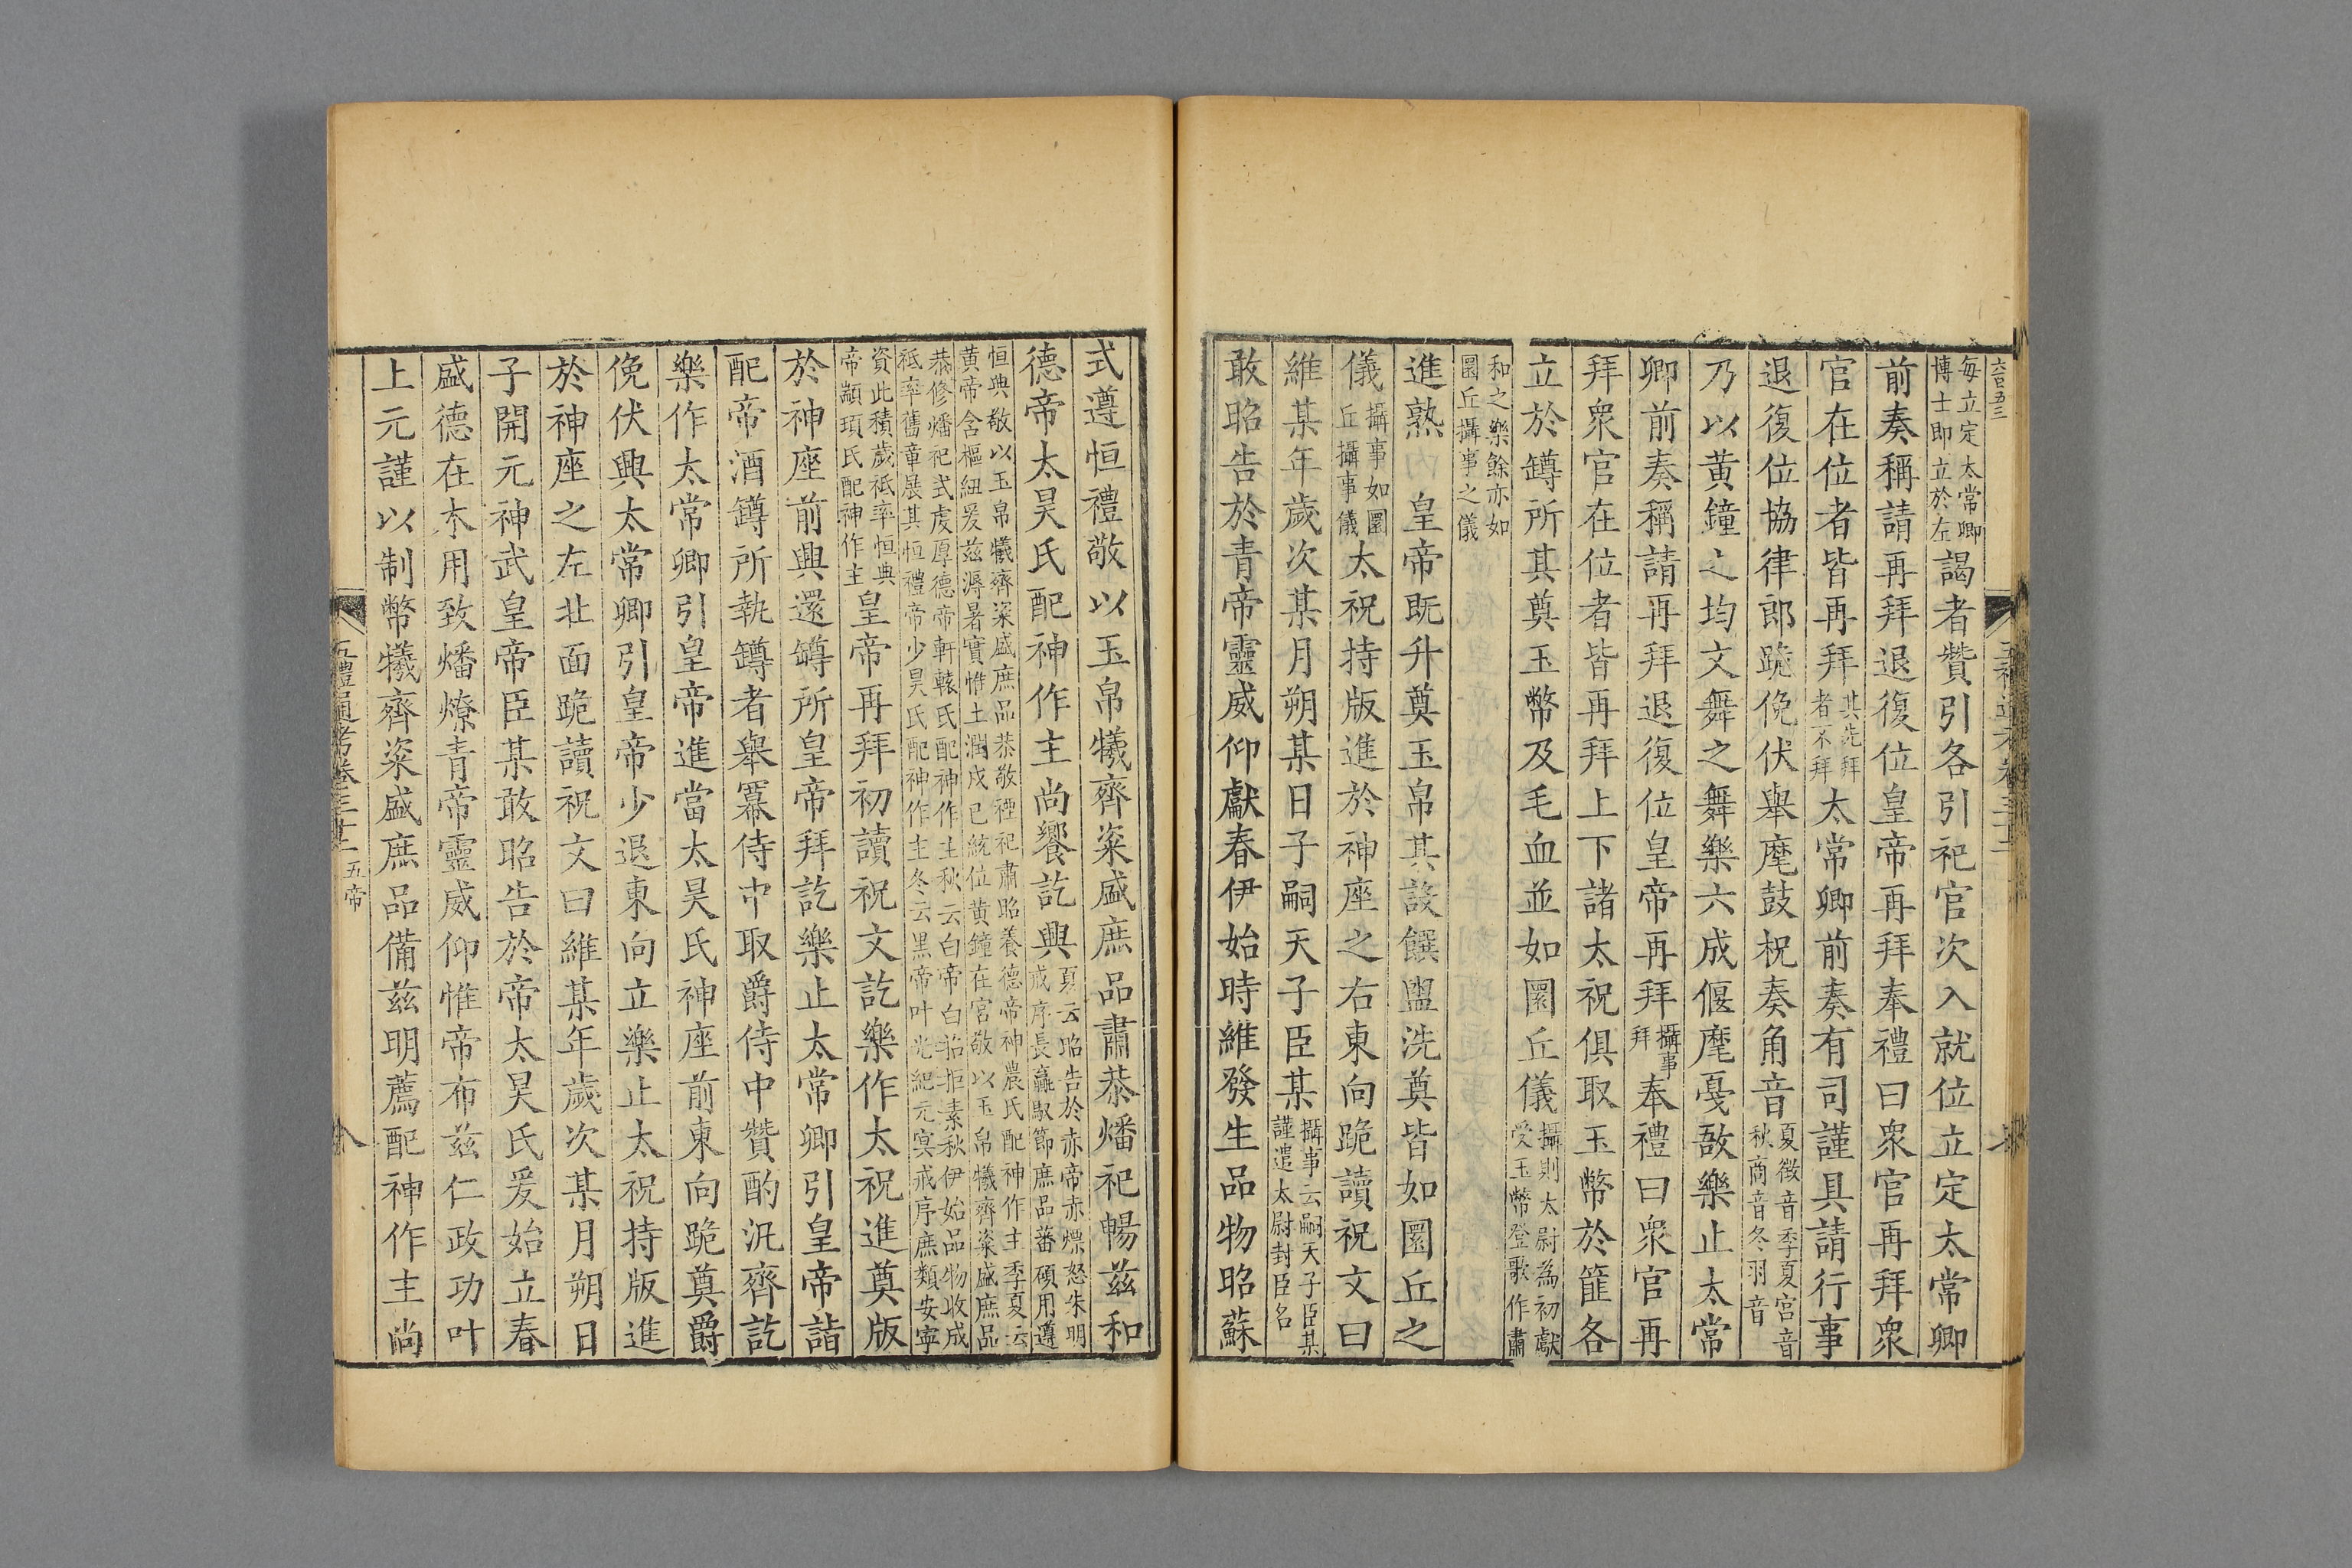 六百五三
每立定太常卿博士即立於左謁者贊引各引祀官次入就位立定太常卿
前奏稱請再拜退復位皇帝再拜奉禮曰衆官再拜衆
官在位者皆再拜其先拜者不拜太常卿前奏有司謹具請行事
退復位協律郎跪俛伏舉麾鼓柷奏角音夏徵音季夏宮音秋商音冬羽音
乃以黃鐘之均文舞之舞樂六成偃麾戞敔樂止太常
卿前奏稱請再拜退復位皇帝再拜攝事拜奉禮曰衆官再
拜衆官在位者皆再拜上下諸太祝俱取玉幣於篚各
立於罇所其奠玉幣及毛血並如圜丘儀攝則太尉為初獻受玉幣登歌作肅
和之樂餘亦如圜丘攝事之儀
進熟 皇帝既升奠玉帛其設饌盥洗奠皆如圜丘之
儀攝事如圜丘攝事儀太祝持版進於神座之右東向跪讀祝文曰
維某年歲次某月朔某日子嗣天子臣某攝事云嗣天子臣某謹遣太尉封臣名
敢昭告於青帝靈威仰獻春伊始時維發生品物昭蘇
式遵恒禮敬以玉帛犧齊粢盛庶品肅恭燔祀暢茲和
德帝太昊氏配神作主尚饗訖興夏云昭告於赤帝赤熛怒朱明戒序長嬴馭節庶品蕃碩用遵
恒典敬以玉帛犧齊粢盛庶品恭敬禋祀肅昭養德帝神農氏配神作主季夏云黃帝含樞紐爰茲溽暑實惟土潤戊己統位黃鐘在宮敬以玉帛犧齊粢盛庶品
恭修燔祀式虔厚德帝軒轅氏配神作主秋云白帝白招拒素秋伊始品物收成祗率舊章展其恒禮帝少昊氏配神作主冬云黑帝叶光紀元冥戒序庶類安寧
資此積歲祗率恒典帝顓頊氏配神作主皇帝再拜初讀祝文訖樂作太祝進奠版
於神座前興還罇所皇帝拜訖樂止太常卿引皇帝詣
配帝酒罇所執罇者舉冪侍中取爵侍中贊酌汎齊訖
樂作太常卿引皇帝進當太昊氏神座前東向跪奠爵
俛伏興太常卿引皇帝少退東向立樂止太祝持版進
於神座之左北面跪讀祝文曰維某年歲次某月朔日
子開元神武皇帝臣某敢昭告於帝太昊氏爰始立春
盛德在木用致燔燎青帝靈威仰惟帝布茲仁政功叶
上元謹以制幣犧齊粢盛庶品備茲明薦配神作主尚
五禮通考卷三十一 五帝 八